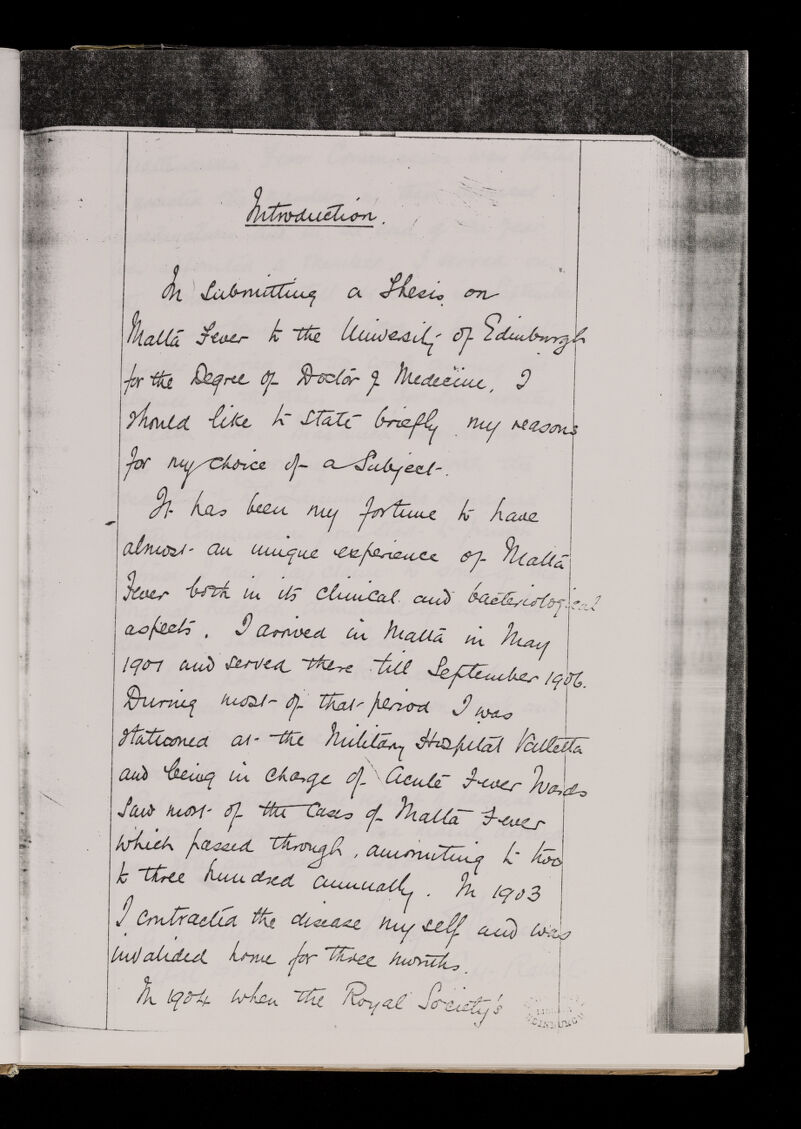 Introduction.
In submitting a Thesis on
Malta Fever to the University of Edinburgh
for the Degree of Doctor of Medecine, I
should like to state briefly my reasons
for my choice of a Subject.
It has been my fortune to have
almost an unique experience of Malta
Fever both in its clinical and bacteriological
aspects. I arrived in Malta in May
1901 and served there till September 1906.
During most of that period I was
stationed at the Military Hospital Valletta
and being in charge of Acute Fever Wards
saw most of the Cases of Malta Fever
which passed through, amounting to two
to three hundred annually. In 1903
I contracted the disease myself and was
invalided home for three months.
In 1904 when the Royal Society's